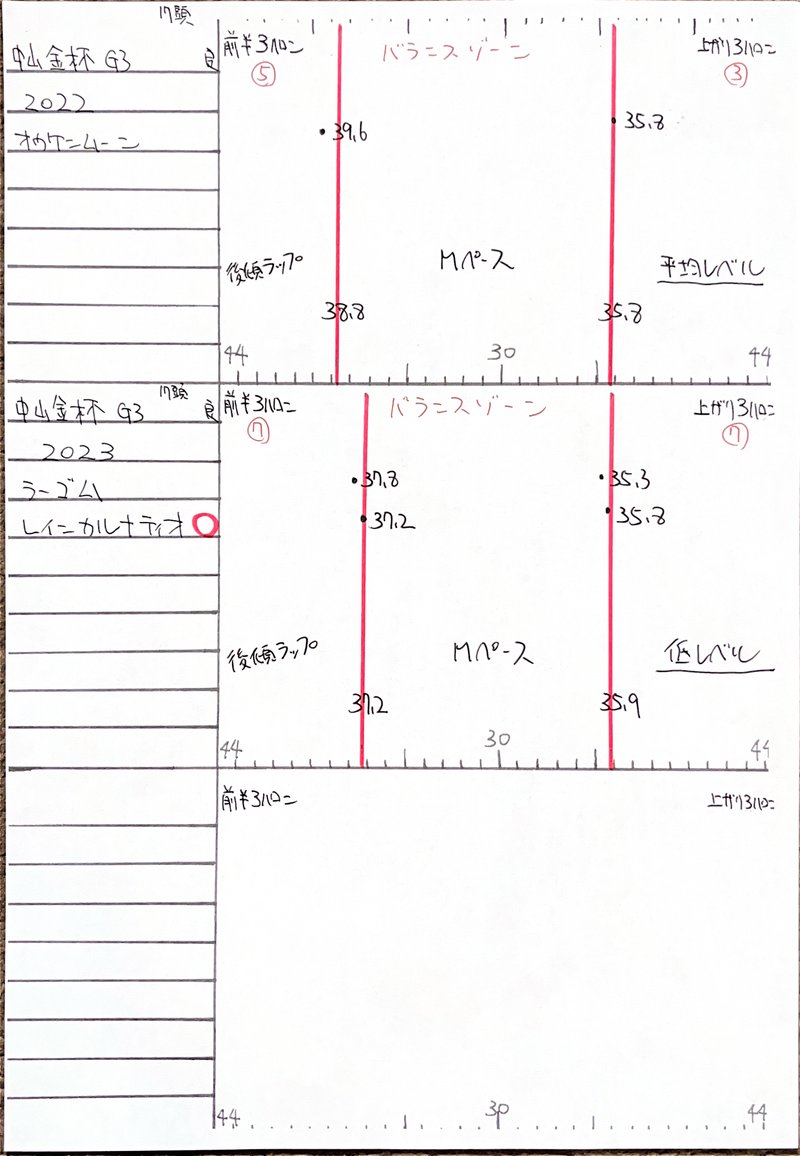 17頭
中山金杯 G3 良
前半3ハロン
バランスゾーン
上がり3ハロン
⑤
③
2022
オウケンムーン
39.6
35.8
後傾ラップ
Mペース
平均レベル
38.8
35.8
44
30
44
17頭
中山金杯 G3 良
前半3ハロン
バランスゾーン
上がり3ハロン
⑦
⑦
2023
ラーゴム
37.8
35.3
レインカルナティオ ○
37.2
35.8
後傾ラップ
Mペース
低レベル
37.2
35.9
44
30
44
前半3ハロン
上がり3ハロン
44
30
44